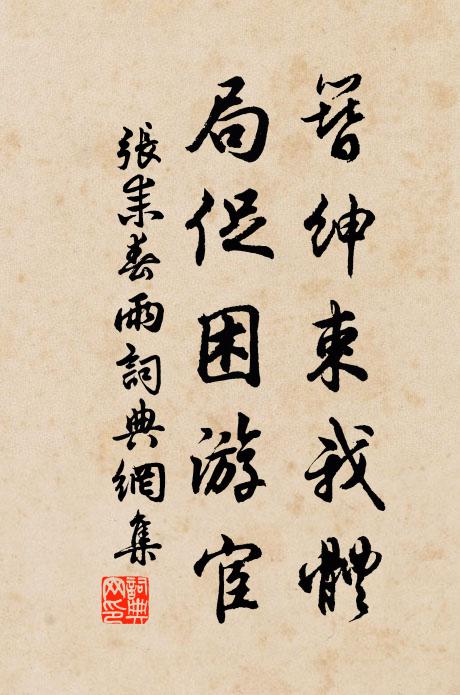 簪紳束我體
局促困游宦
張耒春雨詞典網集
詞典
网印